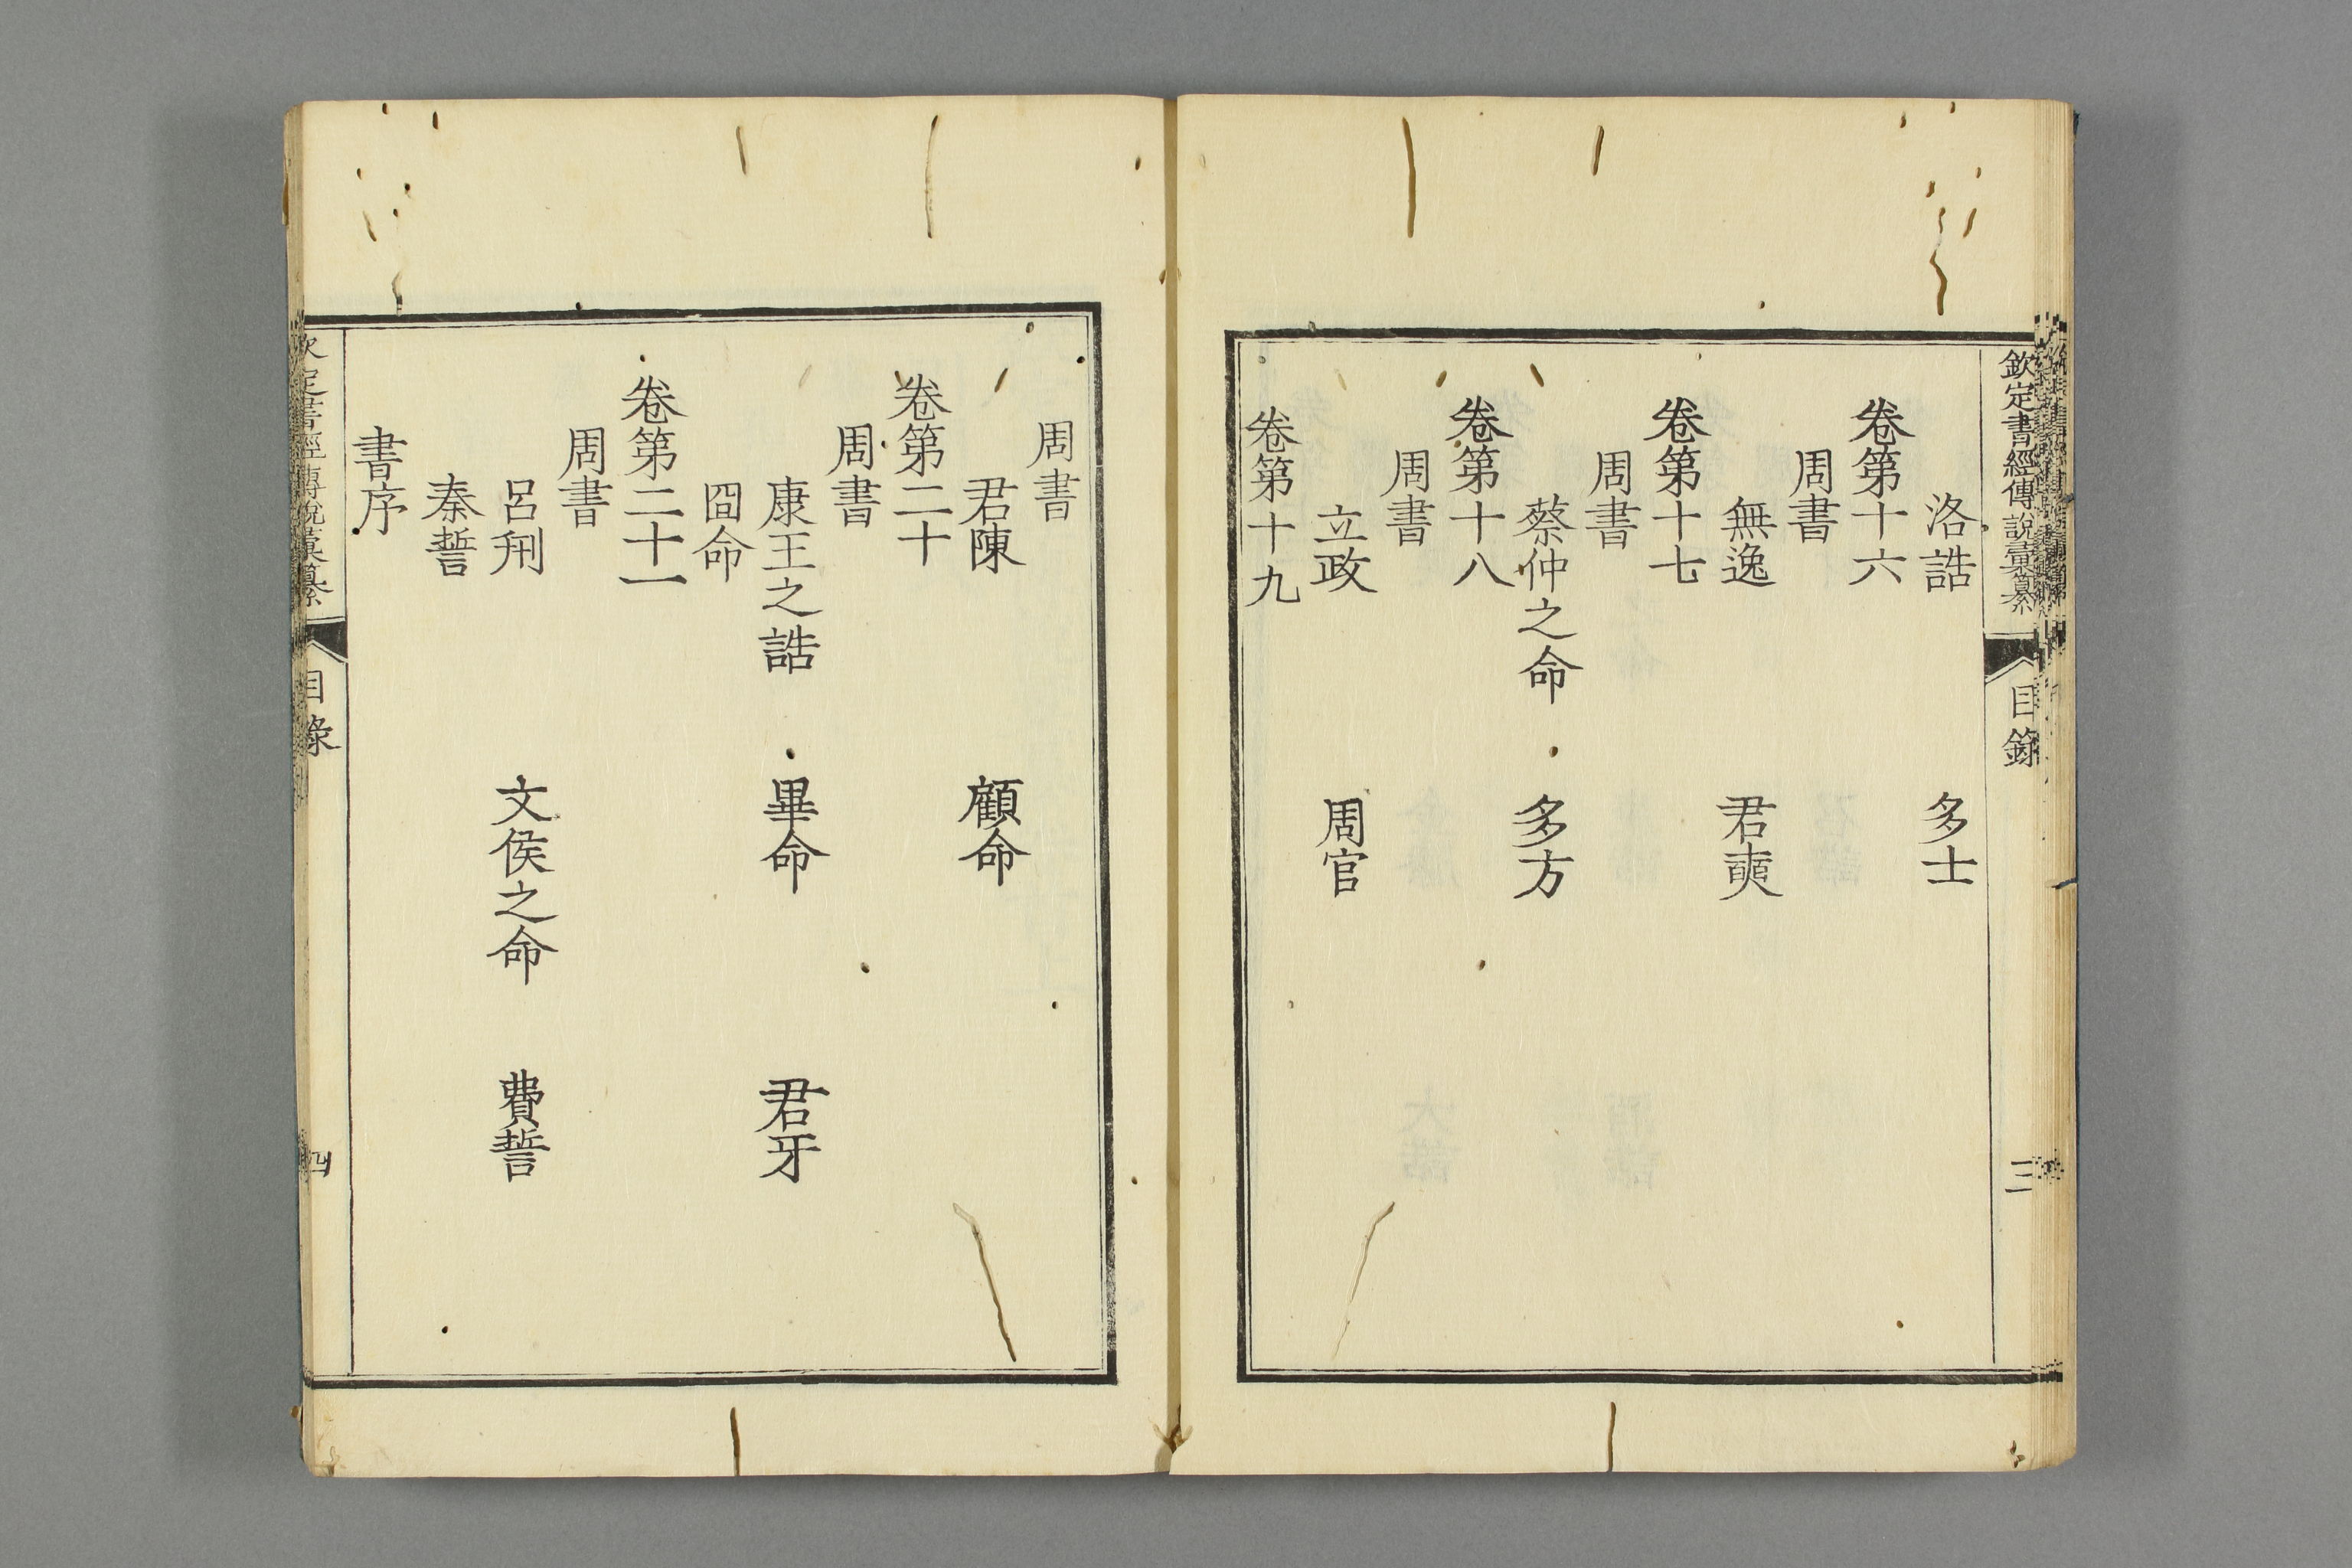 欽定書經傳說彙纂 目錄 三
洛誥 多士
卷第十六
周書
無逸 君奭
卷第十七
周書
蔡仲之命 多方
卷第十八
周書
立政 周官
卷第十九
周書
君陳 顧命
卷第二十
周書
康王之誥 畢命 君牙
冏命
卷第二十一
周書
呂刑 文侯之命 費誓
秦誓
書序
定書經傳說彙纂 目錄 四